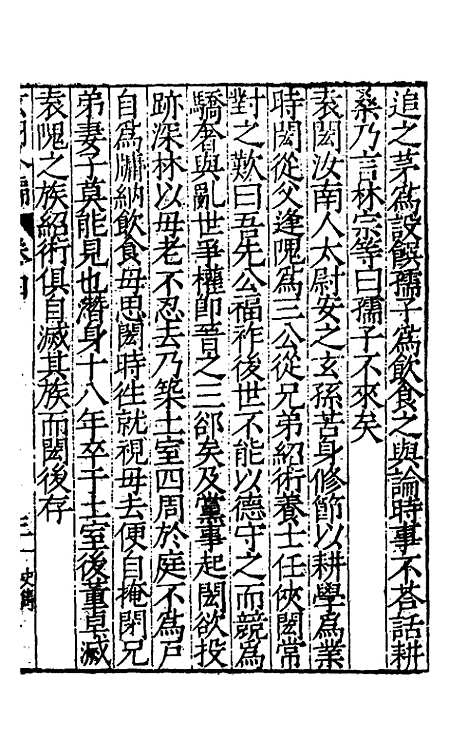 追之茅爲設饌孺子爲飲食之與論時事不荅話耕
桑乃言林宗等曰孺子不來矣
袁閎汝南人太尉安之玄孫苦身修節以耕學爲業
時閎從父逢隗爲三公從兄弟紹術養士任俠閎常
對之歎曰吾先公福祚後世不能以德守之而競爲
驕奢與亂世爭權即晉之三郤矣及黨事起閎欲投
跡深林以母老不忍去乃築土室四周於庭不爲戸
自爲牖納飲食母思閎時徃就視母去便自掩閉兄
弟妻子莫能見也潛身十八年卒于土室後董卓滅
袁隗之族紹術俱自滅其族而閎後存
卷四
三